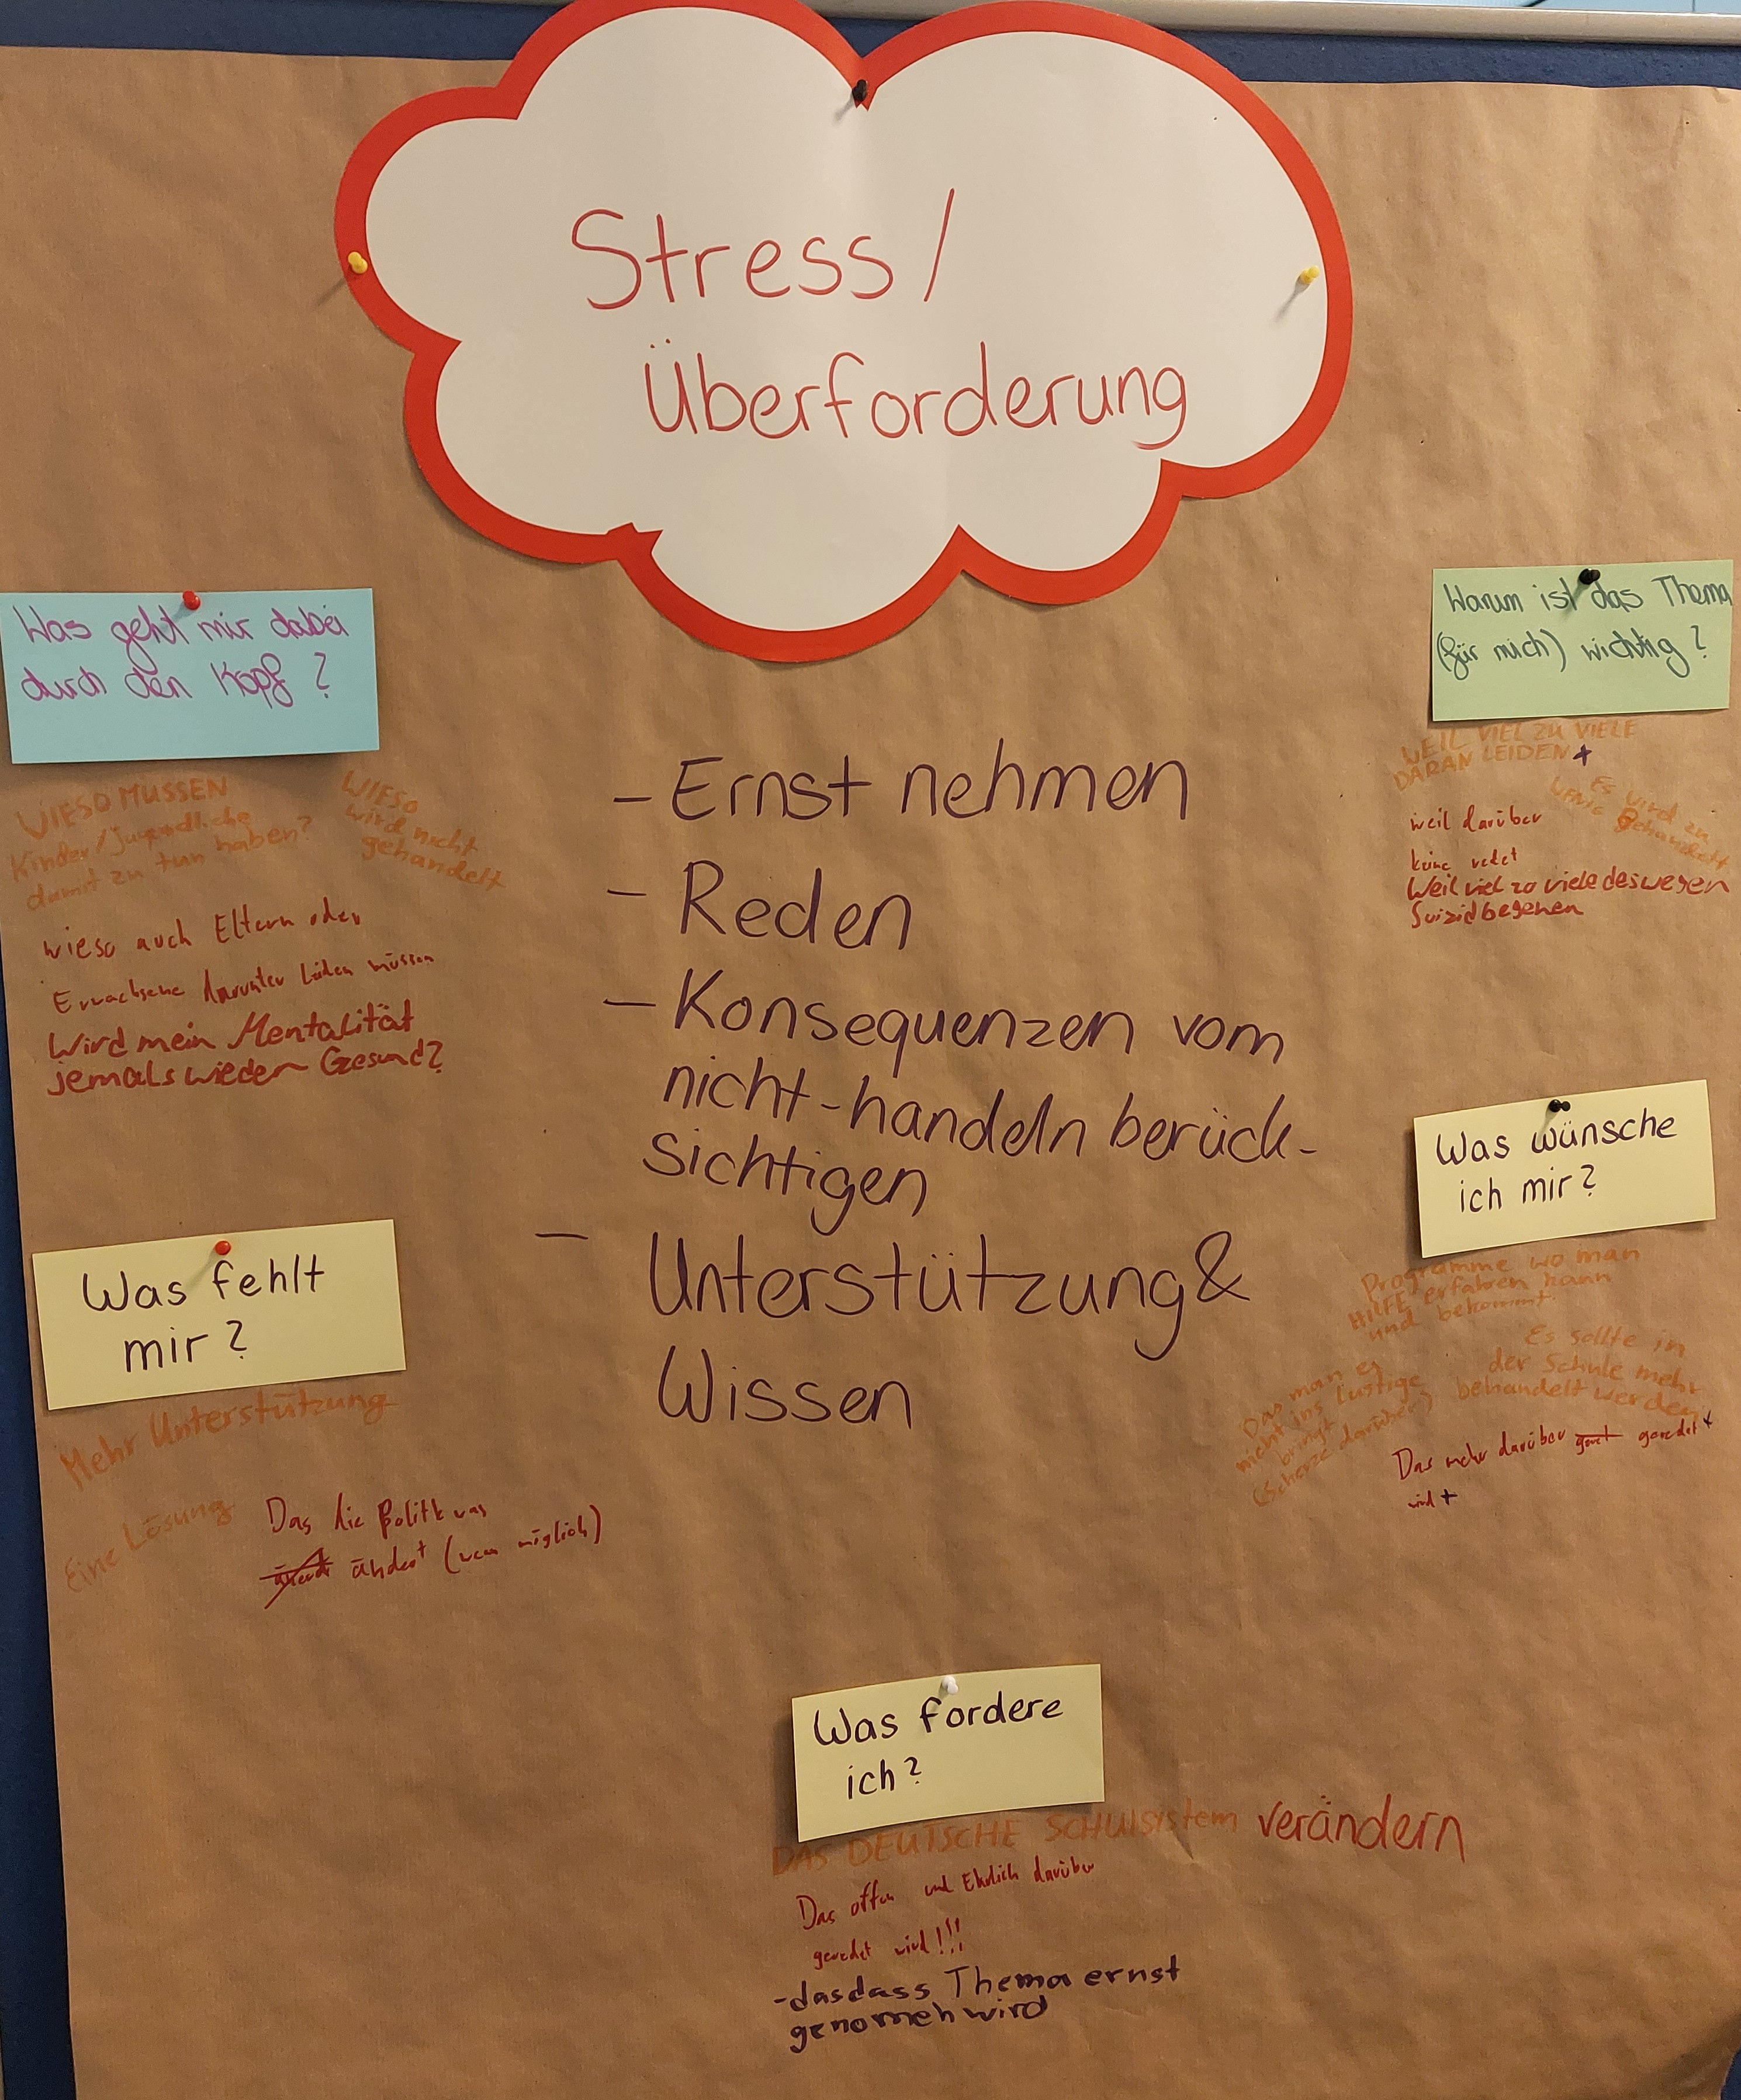 Stress /
Überforderung
Was geht mir dabei
durch den Kopf ?
WIESO MÜSSEN
Kinder/Jugendliche
damit zu tun haben?
WIESO
wird nicht
gehandelt
wieso auch Eltern oder
Erwachsene darunter leiden müssen
Wird mein Mentalität
jemals wieder Gesund?
Warum ist das Thema
(für mich) wichtig ?
WEIL VIEL ZU VIELE
DARAN LEIDEN +
Es wird zu
wenig gehandelt
weil darüber
keine redet
Weil viel zo viele deswegen
Suizid begehen
- Ernst nehmen
- Reden
- Konsequenzen vom
nicht-handeln berück-
sichtigen
- Unterstützung &
Wissen
Was fehlt
mir ?
Mehr Unterstützung
Eine Lösung
Das die Politk was
ändert (wen möglich)
Was wünsche
ich mir ?
Programme wo man
HILFE erfahren kann
und bekommt.
Es sollte in
der Schule mehr
behandelt werden
Das man es
nicht ins Lustige
bringt
(Scherze darüber)
Das mehr darüber geredet +
wird +
Was fordere
ich ?
DAS DEUTSCHE SCHULSystem verändern
Das offen und Ehrlich darüber
geredet wird!!!
- dasdass Thema ernst
genomen wird